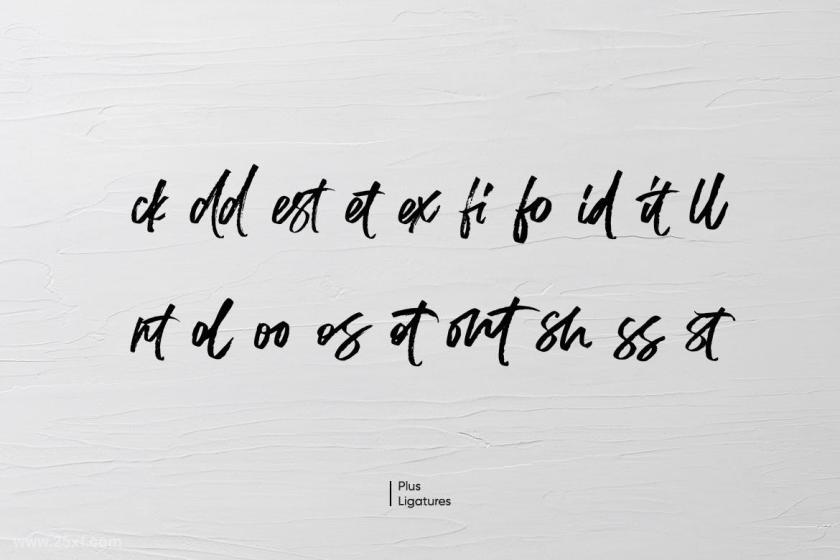 ck dd est et ex fi fo id it ll
nt ol oo os ot out sh ss st
Plus
Ligatures
www.25xt.com